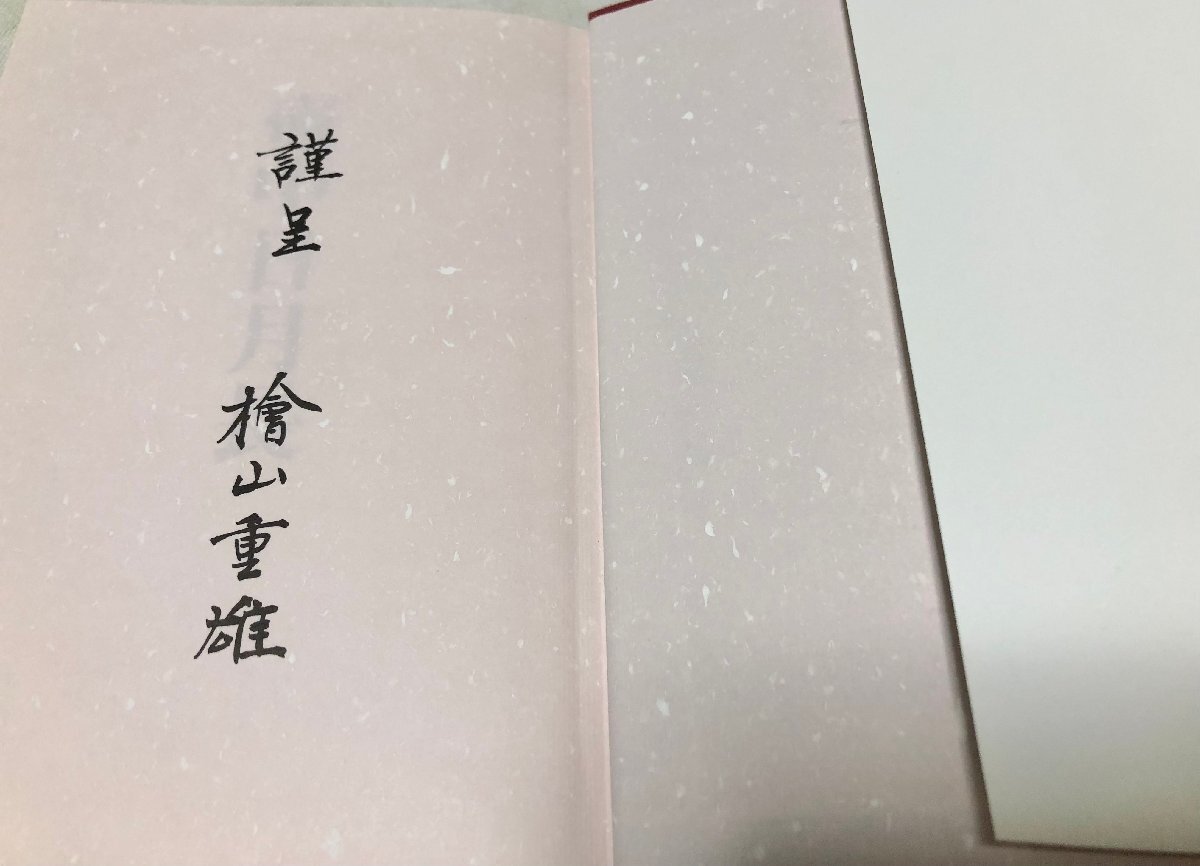 謹呈
檜山重雄